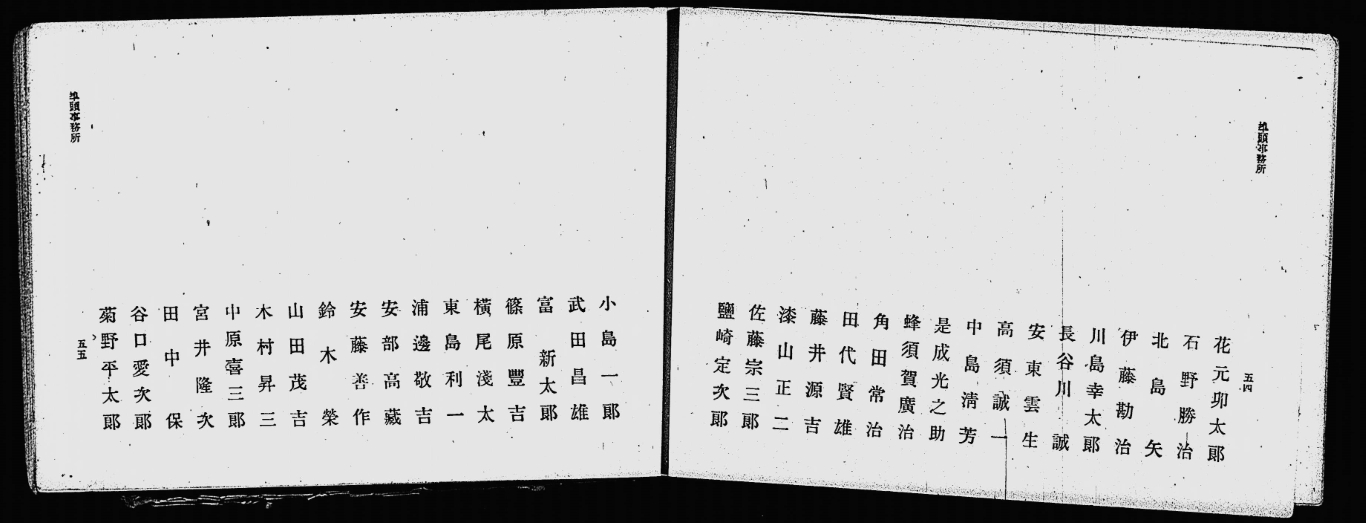 埠頭事務所
五四
花元卯太郎
石野勝治
北島矢
伊藤勘治
川島幸太郎
長谷川誠
安東雲生
高須誠一
中島淸芳
是成光之助
蜂須賀廣治
角田常治
田代賢雄
藤井源吉
漆山正二
佐藤宗三郎
鹽崎定次郎
小島一郎
武田昌雄
富新太郎
篠原豐吉
橫尾淺太
東島利一
浦邊敬吉
安部高藏
安藤善作
鈴木榮
山田茂吉
木村昇三
中原喜三郎
宮井隆次
田中保
谷口愛次郎
菊野平太郎
五五
埠頭事務所